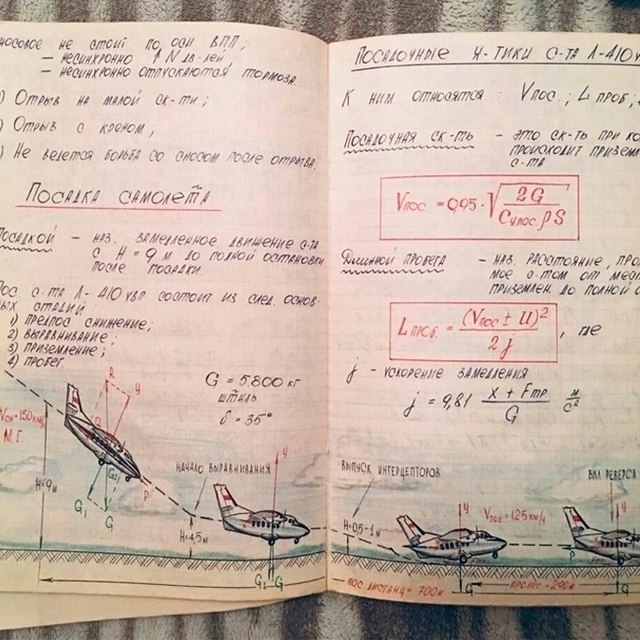 носовое не стоит по оси ВПП;
— несинхронно ↑ N дв-лей;
— несинхронно отпускаются тормоза.
) Отрыв на малой ск-ти;
) Отрыв с креном;
) Не ведется борьба со сносом после отрыва.
Посадка самолета
Посадкой — наз. замедленное движение с-та
с H = 9 м до полной остановки
после посадки.
Пос с-та Л-410 УВП состоит из след. основ-
ных стадий:
1) предпос снижение;
2) выравнивание;
3) приземление;
4) пробег.
G = 5.800 кг
штиль
δ = 35°
R
У
Q
Vсн = 150 км/ч
М.Г.
G₂
P
G₁
G
H = 9м
начало выравнивания
У
H = 4,5м
G₁
G
Посадочные х-тики с-та Л-410 У
К ним относятся: Vпос.; L проб.;
Посадочная ск-ть — это ск-ть при ко
происходит призем
с-та
Vпос. = 0,95 · √ 2G / Cу пос. ρ S
Длиной пробега — наз. расстояние, про
мое с-том от мес
приземлен. до полной о
L проб. = (Vпос ± U)² / 2j , где
j - ускорение замедления
j = 9,81 X + Fтр / G м/с²
выпуск интерцепторов
вкл реверса
H = 0,5-1 м
У
Vпос = 125 км/ч
У
G
G
пос дистанц = 700м
пробег = 240м